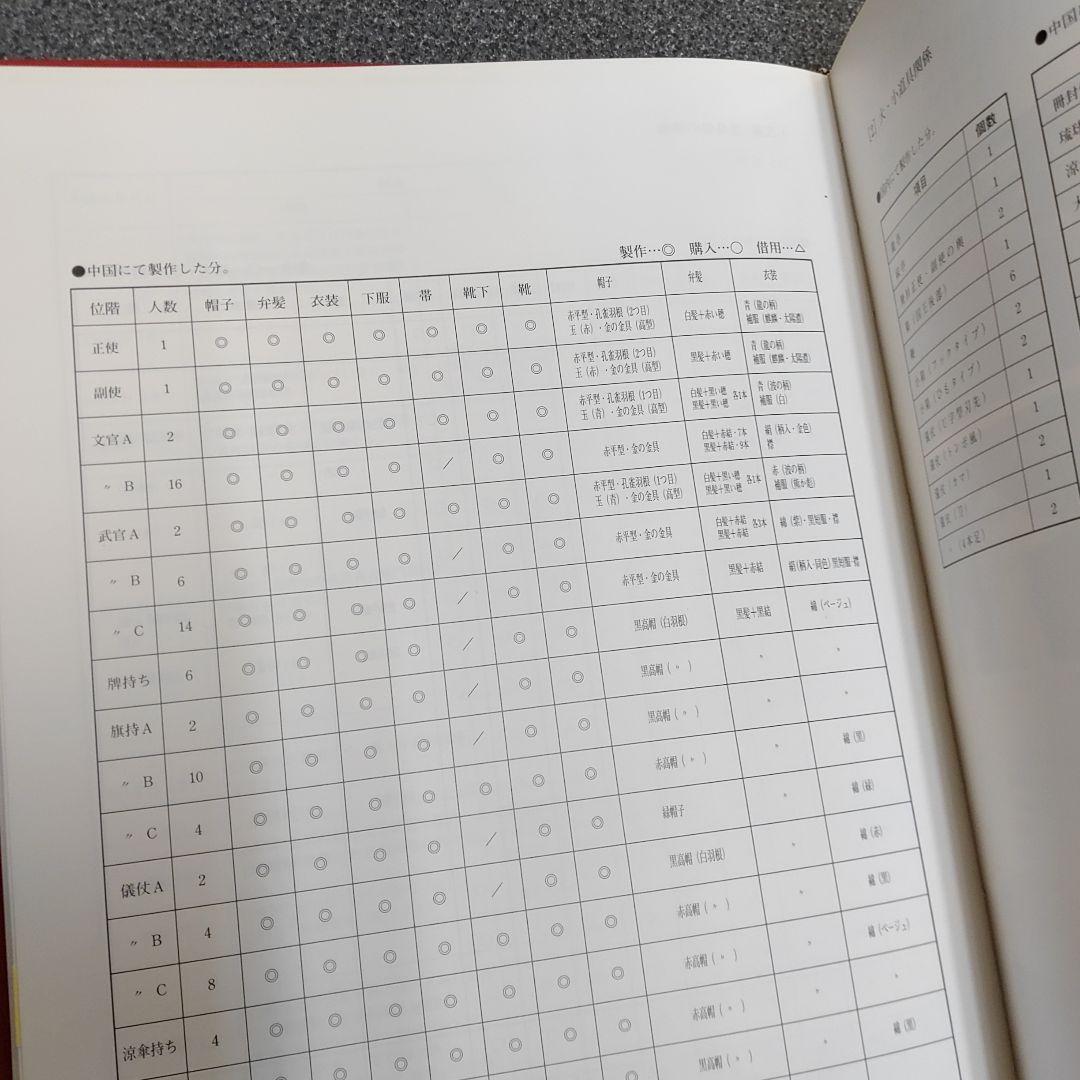 製作…◎　購入…○　借用…△
●中国にて製作した分。
位階 人数 帽子 弁髪 衣装 下服 帯 靴下 靴 帽子 弁髪 衣装
正使 1 ◎ ◎ ◎ ◎ ◎ ◎ ◎ 赤平型・孔雀羽根（2つ目） 玉（赤）・金の金具（高型） 白髪＋赤い穂 青（龍の柄） 補服（麒麟・太陽
副使 1 ◎ ◎ ◎ ◎ ◎ ◎ ◎ 赤平型・孔雀羽根（2つ目） 玉（赤）・金の金具（高型） 黒髪＋赤い穂 青（龍の柄） 補服（麒麟・太陽
文官A 2 ◎ ◎ ◎ ◎ ◎ ◎ ◎ 赤平型・孔雀羽根（1つ目） 玉（青）・金の金具（高型） 白髪＋黒い穂 黒髪＋黒い穂 各1本 青（波の柄） 補服（白）
〃 B 16 ◎ ◎ ◎ ◎ / ◎ ◎ 赤平型・金の金具 白髪＋赤結・7本 黒髪＋赤結・9本 絹（柄入・金色） 襟
武官A 2 ◎ ◎ ◎ ◎ ◎ ◎ ◎ 赤平型・孔雀羽根（1つ目） 玉（青）・金の金具（高型） 白髪＋黒い穂 黒髪＋黒い穂 各1本 赤（波の柄） 補服（熊か彪）
〃 B 6 ◎ ◎ ◎ ◎ / ◎ ◎ 赤平型・金の金具 白髪＋赤結 黒髪＋赤結 各3本 綿（紫）・黒短服・襟
〃 C 14 ◎ ◎ ◎ ◎ / ◎ ◎ 赤平型・金の金具 黒髪＋赤結 絹（柄入・同色）黒短服・襟
牌持ち 6 ◎ ◎ ◎ ◎ / ◎ ◎ 黒高帽（白羽根） 黒髪＋黒結 綿（ベージュ）
旗持A 2 ◎ ◎ ◎ ◎ / ◎ ◎ 黒高帽（〃） 〃 〃
〃 B 10 ◎ ◎ ◎ ◎ / ◎ ◎ 黒高帽（〃） 〃 〃
〃 C 4 ◎ ◎ ◎ ◎ ◎ ◎ ◎ 赤高帽（〃） 〃 綿（黒）
儀仗A 2 ◎ ◎ ◎ ◎ / ◎ ◎ 緑帽子 〃 綿（緑）
〃 B 4 ◎ ◎ ◎ ◎ / ◎ ◎ 黒高帽（白羽根） 〃 綿（赤）
〃 C 8 ◎ ◎ ◎ ◎ ◎ ◎ ◎ 赤高帽（〃） 〃 綿（黒）
涼傘持ち 4 ◎ ◎ ◎ ◎ ◎ ◎ ◎ 赤高帽（〃） 〃 綿（ベージュ）
赤高帽（〃） 〃 〃
黒高帽（〃） 〃 綿（黒）
[2] 大・小道具関係
●国内にて製作した分。
項目 個数
1
1
冊封正使・副使の輿 2
（国王後部） 1
6
（フックタイプ） 2
（ひもタイプ） 2
1
儀仗（トンボ風） 1
儀仗（カマ） 2
儀仗（刀） 1
〃（4本足） 2
●中国
冊封
琉球
涼